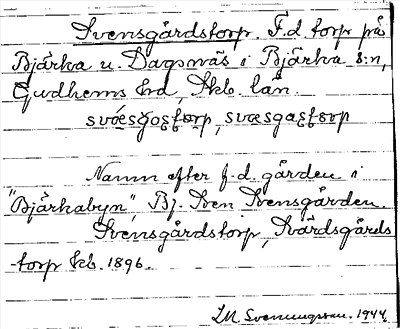 Svensgårdstorp. F.d. torp på
Bjärka u. Dagsnäs i Bjärka s:n,
Gudhems hd, Skb. län.
svǽsgos̨tɷrp, svæsgas̨tɷrp
Namn efter f.d. gården i
"Bjärkabyn" Bj. Sven Svensgården.
Svensgårdstorp, Svärdsgårds
-torp kb. 1896.
LM Svenungsson. 1944